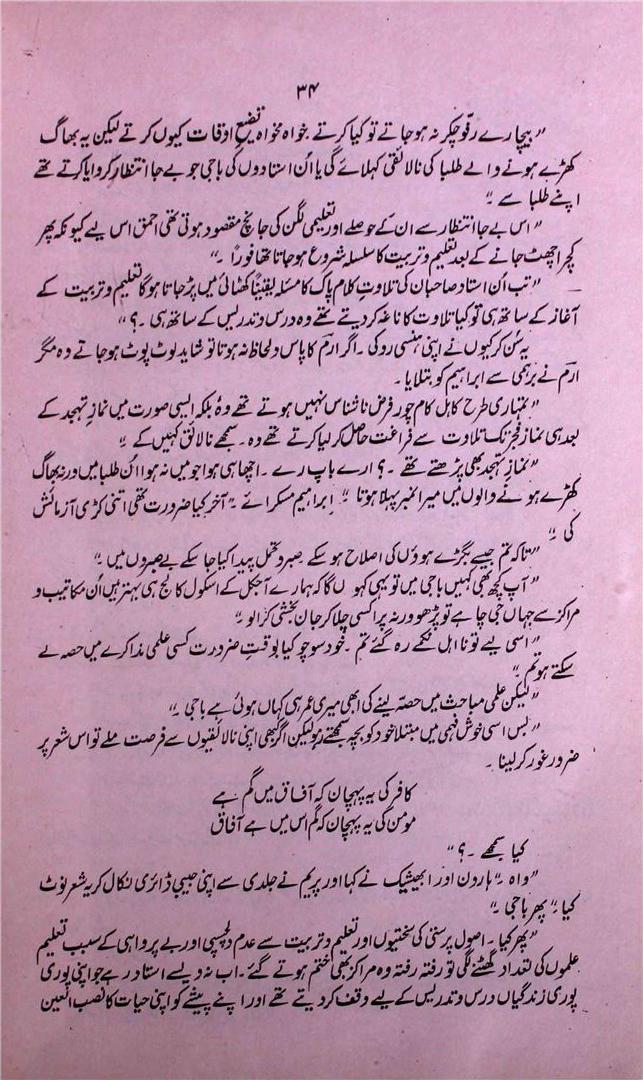 ۳۴
"بیچارے رفوچکر نہ ہو جاتے تو کیا کرتے خواہ مخواہ تضیعِ اوقات کیوں کرتے لیکن یہ بھاگ
کھڑے ہونے والے طلبا کی نالائقی کہلائے گی یا اُن استادوں کی باجی جو بے جا انتظار کروایا کرتے تھے
اپنے طلبا سے ۔"
"اس بے جا انتظار سے ان کے حوصلے اور تعلیمی لگن کی جانچ مقصود ہوتی تھی احمق اس لیے کیونکہ پھر
کچرا چھٹ جانے کے بعد تعلیم و تربیت کا سلسلہ شروع ہو جاتا تھا فوراً ۔"
"تب اُن استاد صاحبان کی تلاوتِ کلام پاک کا مسئلہ یقیناً کھٹائی میں پڑ جاتا ہوگا تعلیم و تربیت کے
آغاز کے ساتھ ہی تو کیا تلاوت کا ناغہ کر دیتے تھے وہ درس و تدریس کے ساتھ ہی ۔؟"
یہ سُن کر کیوں نے اپنی ہنسی روکی ۔ اگر ارم کا پاس و لحاظ نہ ہوتا تو شاید لوٹ پوٹ ہو جاتے وہ مگر
ارم نے برہمی سے ابراہیم کو بتلایا ۔
"تمہاری طرح کاہل کام چور فرض ناشناس نہیں ہوتے تھے وہ بلکہ ایسی صورت میں نمازِ تہجد کے
بعد ہی نماز فجر تک تلاوت سے فراغت حاصل کر لیا کرتے تھے وہ ۔ سمجھے نالائق کہیں کے ۔"
"نماز تہجد بھی پڑھتے تھے ۔؟ ارے باپ رے ۔ اچھا ہی ہوا جو میں نہ ہوا اُن طلبا میں ورنہ بھاگ
کھڑے ہونے والوں میں میرا نمبر پہلا ہوتا ۔" ابراہیم مسکرائے ۔ "آخر کیا ضرورت تھی اتنی کڑی آزمائش
کی ۔"
"تاکہ تم جیسے بگڑے ہوؤں کی اصلاح ہو سکے صبر و تحمل پیدا کیا جا سکے بے صبروں میں ۔"
"آپ کچھ بھی کہیں باجی میں تو یہی کہوں گا کہ ہمارے آجکل کے اسکول کالج ہی بہتر ہیں اُن مکاتیب و
مراکز سے جہاں جی چاہے تو پڑھو ورنہ پراکسی چلا کر جان بخشی کرا لو ۔"
"اسی لیے تو نا اہل نکمے رہ گئے تم ۔ خود سوچو کیا بوقتِ ضرورت کسی علمی مذاکرے میں حصہ لے
سکتے ہو تم ۔"
"لیکن علمی مباحث میں حصّہ لینے کی ابھی میری عمر ہی کہاں ہوئی ہے باجی ۔"
"بس اسی خوش فہمی میں مبتلا خود کو بچہ سمجھتے رہو لیکن اگر کبھی اپنی نالائقیوں سے فرصت ملے تو اس شعر پر
ضرور غور کر لینا ۔
کافر کی یہ پہچان کہ آفاق میں گم ہے
مومن کی یہ پہچان کہ گم اس میں ہے آفاق
کیا سمجھے ۔؟"
"واہ ۔" ہارون اور ابھیشیک نے کہا اور پریم نے جلدی سے اپنی جیبی ڈائری نکال کر یہ شعر نوٹ
کیا ۔ "پھر باجی ۔"
"پھر کیا ۔ اصول پرستی کی سختیوں اور تعلیم و تربیت سے عدم دلچسپی اور بے پرواہی کے سبب تعلیم
علموں کی تعداد گھٹنے لگی تو رفتہ رفتہ وہ مراکز بھی ختم ہوتے گئے ۔ اب نہ ویسے استاد رہے جو اپنی پوری
پوری زندگیاں درس و تدریس کے لیے وقف کر دیتے تھے اور اپنے پیشے کو اپنی حیات کا نصب العین